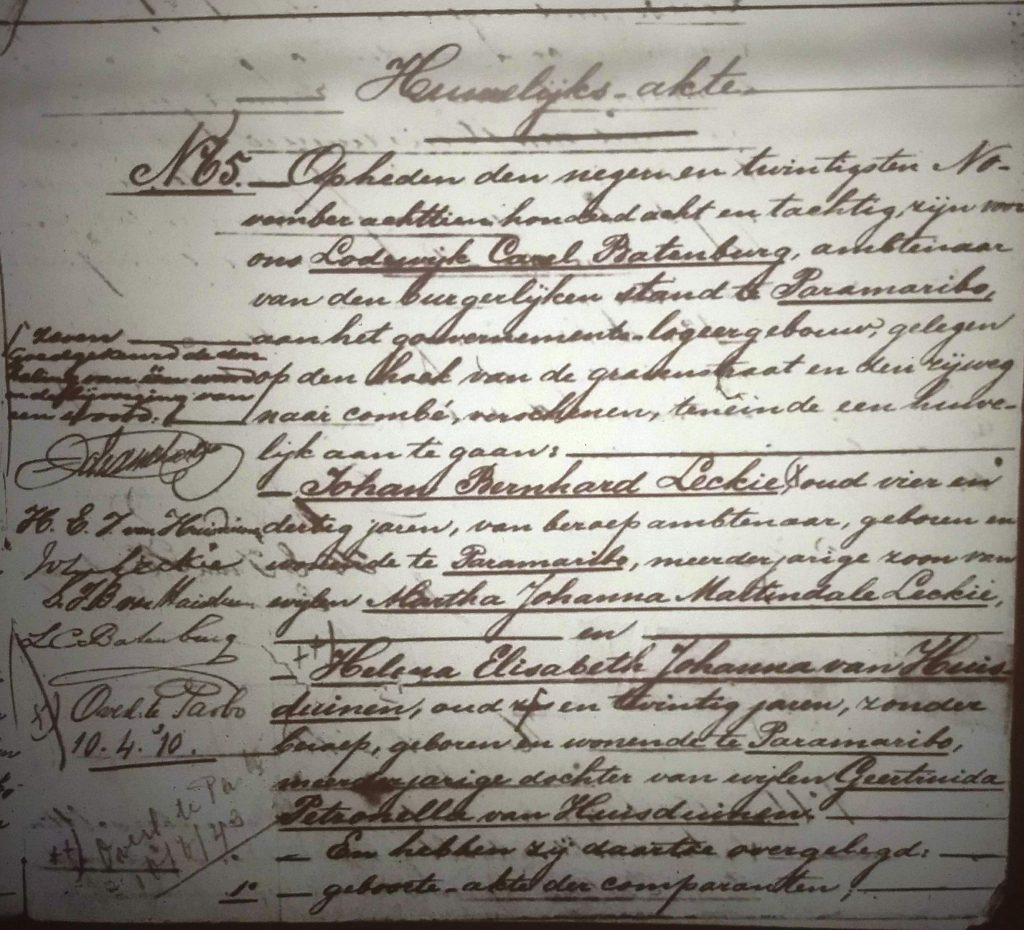 Huwelijks-akte
N 65. Op heden den negen en twintigsten No-
vember achttien honderd acht en tachtig, zijn voor
ons Lodewijk Carel Batenburg, ambtenaar
van den burgerlijken stand te Paramaribo,
aan het gouvernements-logeergebouw, gelegen
op den hoek van de gravenstraat en den rijweg
naar combé, verschenen, teneinde een huwe-
lijk aan te gaan:
Johan Bernhard Leckie, oud vier en
dertig jaren, van beroep ambtenaar, geboren en
wonende te Paramaribo, meerderjarige zoon van
wijlen Martha Johanna Maltindale Leckie,
en
Helena Elisabeth Johanna van Huis-
duinen, oud en twintig jaren, zonder
beroep, geboren en wonende te Paramaribo,
meerderjarige dochter van wijlen Geertruida
Petronella van Huisduinen:
En hebben zij daartoe overgelegd:
1° geboorte-akte der comparanten,
zeven
Goedgekeurd de door
haling van een woord
en de bijvoeging van
een woord.
H. E. J. van Huisduinen
Leckie
L.C. Batenburg
x) Overl. te Parbo
10.4.'10.
++) Overl. te Pa